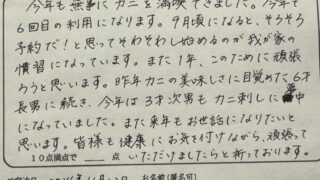 今年も無事にカニを満喫できました。今年で
6回目の利用になります。9月頃になると、そろそろ
予約だ!と思ってそわそわし始めるのが我が家の
慣習になっています。また1年、このために頑張
ろうと思います。昨年カニの美味しさに目覚めた6才
長男に続き、今年は3才次男もカニ刺しに夢中
になっていました。また来年もお世話になりたいと
思います。皆様も健康にお気を付けながら、頑張って
10点満点で 点 いただけましたらと祈っております。
お名前(匿名可)